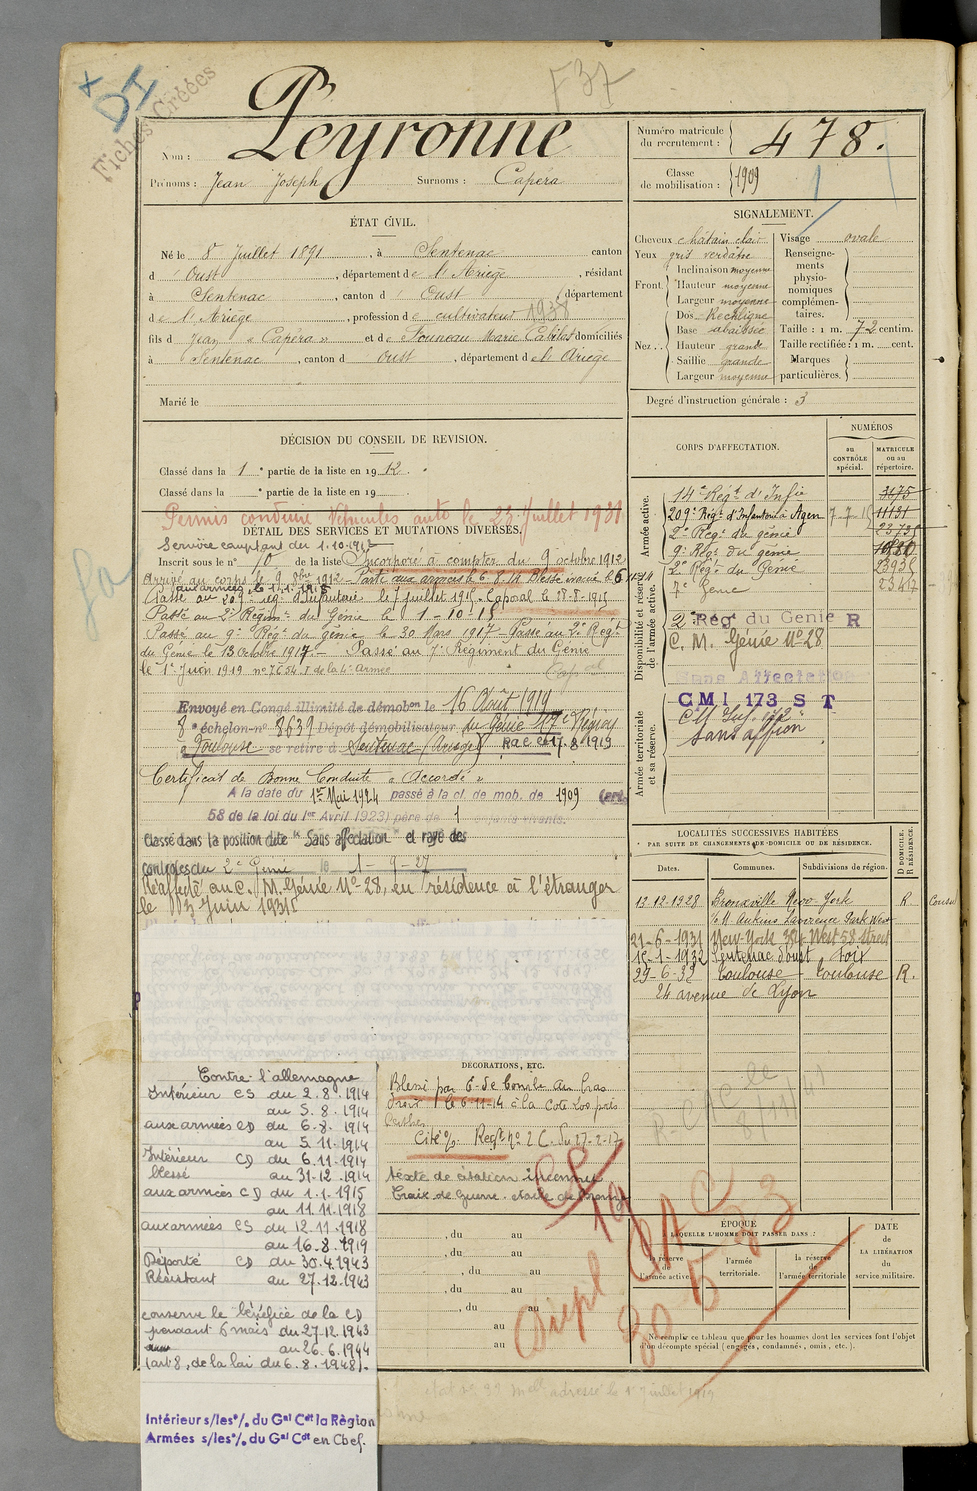 F37
DI
Fiches Créées
Nom : Peyronne
Prénoms : Jean Joseph Surnoms : Capera
Numéro matricule du recrutement : 478.
Classe de mobilisation : 1909
ÉTAT CIVIL.
Né le 8 Juillet 1891, à Sentenac canton
d'Oust, département de l'Ariège, résidant
à Sentenac, canton d'Oust département
de l'Ariège, profession de cultivateur 1938
fils d Jean « Capéra » et de Founeau Marie domiciliés
à Sentenac, canton d Oust, département de l'Ariège
Marié le
SIGNALEMENT.
Cheveux châtain clair
Yeux gris verdâtre
Front. Inclinaison moyenne
Hauteur moyenne
Largeur moyenne
Nez. Dos Rectiligne
Base abaissée
Hauteur grande
Saillie grande
Largeur moyenne
Visage ovale
Renseignements physionomiques complémentaires.
Taille : 1 m. 72 centim.
Taille rectifiée : 1 m. cent.
Marques particulières.
Degré d'instruction générale : 3
DÉCISION DU CONSEIL DE REVISION.
Classé dans la 1e partie de la liste en 1912.
Classé dans la e partie de la liste en 19
Permis conduire Véhicules auto le 23 Juillet 1931
DÉTAIL DES SERVICES ET MUTATIONS DIVERSES.
Service comptant du 1.10.1912
Inscrit sous le n° 10 de la liste Incorporé à compter du 9 octobre 1912
Arrivé au corps le 9 8bre 1912 – Parti aux armées le 6.8.14 Blessé évacué le 6
aux armées le 1.1.1915
Passé au 209e rég. d'Infanterie le 7 juillet 1915 - Caporal le 28-8-1915
Passé au 2e Régim. du Génie le 1-10-15
Passé au 9e Rég. du génie le 30 Mars 1917 – Passé au 2e Régt
du Génie le 13 octobre 1917 – Passé au 7e Régiment du Génie
le 1er Juin 1919 n° 7654.1 de la 4e Armée
Caporal
Envoyé en Congé illimité de démobon le 16 Août 1919
8e échelon-n° 8639 Dépôt démobilisateur du Génie 17e Région
à Toulouse se retire à Sentenac (Ariège) R a c le 17.8.1919
Certificat de Bonne Conduite « Accordé »
A la date du 1er Mai 1924 passé à la cl. de mob. de 1909 (art.
58 de la loi du 1er Avril 1923) père de 1 enfants vivants.
Classé dans la position dite "Sans affectation" et rayé des
contrôles du 2e Génie le 1-9-27
Réaffecté au C. M. Génie N°-28, en résidence à l'étranger
le 3 Juin 1931
CORPS D'AFFECTATION.
NUMÉROS
au CONTRÔLE spécial.
MATRICULE ou au répertoire.
Armée active.
14e Régt d'Infie 3175
209e Régt d'Infanterie à Agen 7-7-15 11131
2e Régt du génie 23735
9e Régt du génie
2e Régt du Génie 23935
7e Génie
Disponibilité et réserve de l'armée active.
2e Régt du Génie R
C. M. Génie N° 28
Sans Affectation
CMI 173 S T
CM Inf. 172
Sans affion
Armée territoriale et sa réserve.
LOCALITÉS SUCCESSIVES HABITÉES
PAR SUITE DE CHANGEMENTS DE DOMICILE OU DE RÉSIDENCE.
D DOMICILE. R RÉSIDENCE.
Dates. Communes. Subdivisions de région.
12-12-1928 Bronxville New-York R Consul
c/o M. Aukins Lawrence Park West
21-6-1931 New-York 384 West 58 Street
15-1-1932 Sentenac d'oust Foix
29-6-32 Toulouse - Toulouse R.
24 avenue de Lyon
Contre l'allemagne
Intérieur CS du 2.8.1914
au 5.8.1914
aux armées CD du 6.8.1914
au 5.11.1914
Intérieur CD du 6.11.1914
blessé au 31.12.1914
aux armées CD du 1.1.1915
au 11.11.1918
aux armées CS du 12.11.1918
au 16.8.1919
Déporté CD du 30.4.1943
Résistant au 27.12.1943
conserve le bénéfice de la CD
pendant 6 mois du 27.12.1943
au 26.6.1944
(art 8, de la loi du 6.8.1948).
Intérieur s/les°/. du Gal Cdt la Région
Armées s/les°/. du Gal Cdt en Chef.
DECORATIONS, ETC.
Blessé par E. de bombe au bras
droit le 6-11-14 à la Cote 200 près
Perthes.
Cité o/. Regt n° 2 C. du 27-2-17
texte de citation inconnu
Croix de Guerre étoile de bronze
, du au
, du au
, du au
, du au
, du au
au
au
R-CAC le
8/11/41
CR
19
Dupl CAC
30 5 83
ÉPOQUE
À LAQUELLE L'HOMME DOIT PASSER DANS :
la réserve de l'armée active
l'armée territoriale.
la réserve de l'armée territoriale
DATE de LA LIBÉRATION du service militaire.
Ne remplir ce tableau que pour les hommes dont les services font l'objet
d'un décompte spécial (engagés, condamnés, omis, etc.).
adressé le 1er Juillet 1919